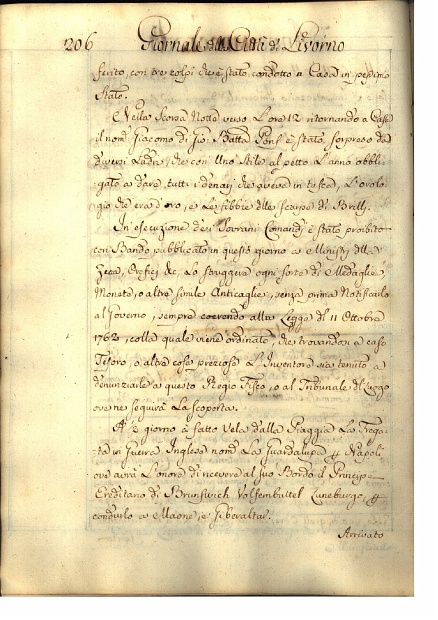 206 Giornale della Città di Livorno
ferito, con tre colpi, che è stato condotto a Casa in pessimo
stato.
Nella Scorsa Notte verso L'ore 12 ritornando a Casa
il nom: Giacomo di Gio: Batta Pons è stato sorpreso da
diversi Ladri, che con Uno Stile al petto L'anno obbli-
gato a dare tutti i denari che aveva in tasca, L'orolo-
gio che era d'oro, e Le fibbie delle scarpe di Brill:
In esecuzione dei Sovrani Comandi è stato proibito
con Bando pubblicato in questo giorno a Ministri della
Zeca, Orefici &c. Lo struggere ogni sorte di Medaglie
Monete, o altre simile Anticaglie, senza prima Notificarlo
al Governo, sempre coerendo alla Legge del 11 Ottobra
1762, colla quale viene ordinato, che trovandosi a caso
Tesoro, o altra cosa preziosa L'Inventore sia tenuto a
denunziarle a questo Regio Fisco, o al Tribunale del luogo
ove ne seguirà La scoperta.
giorno à fatto Vela dalla Piaggia La Frega-
ta in Guerra Inglese nom: La Guardalupa Napoli
ove avrà L'onore di ricevere al suo Bordo il Principe
Ereditario di Brunswich Volfembuttel Luneburgo,
condurlo a Maone, e Giberalta.
Arrivato